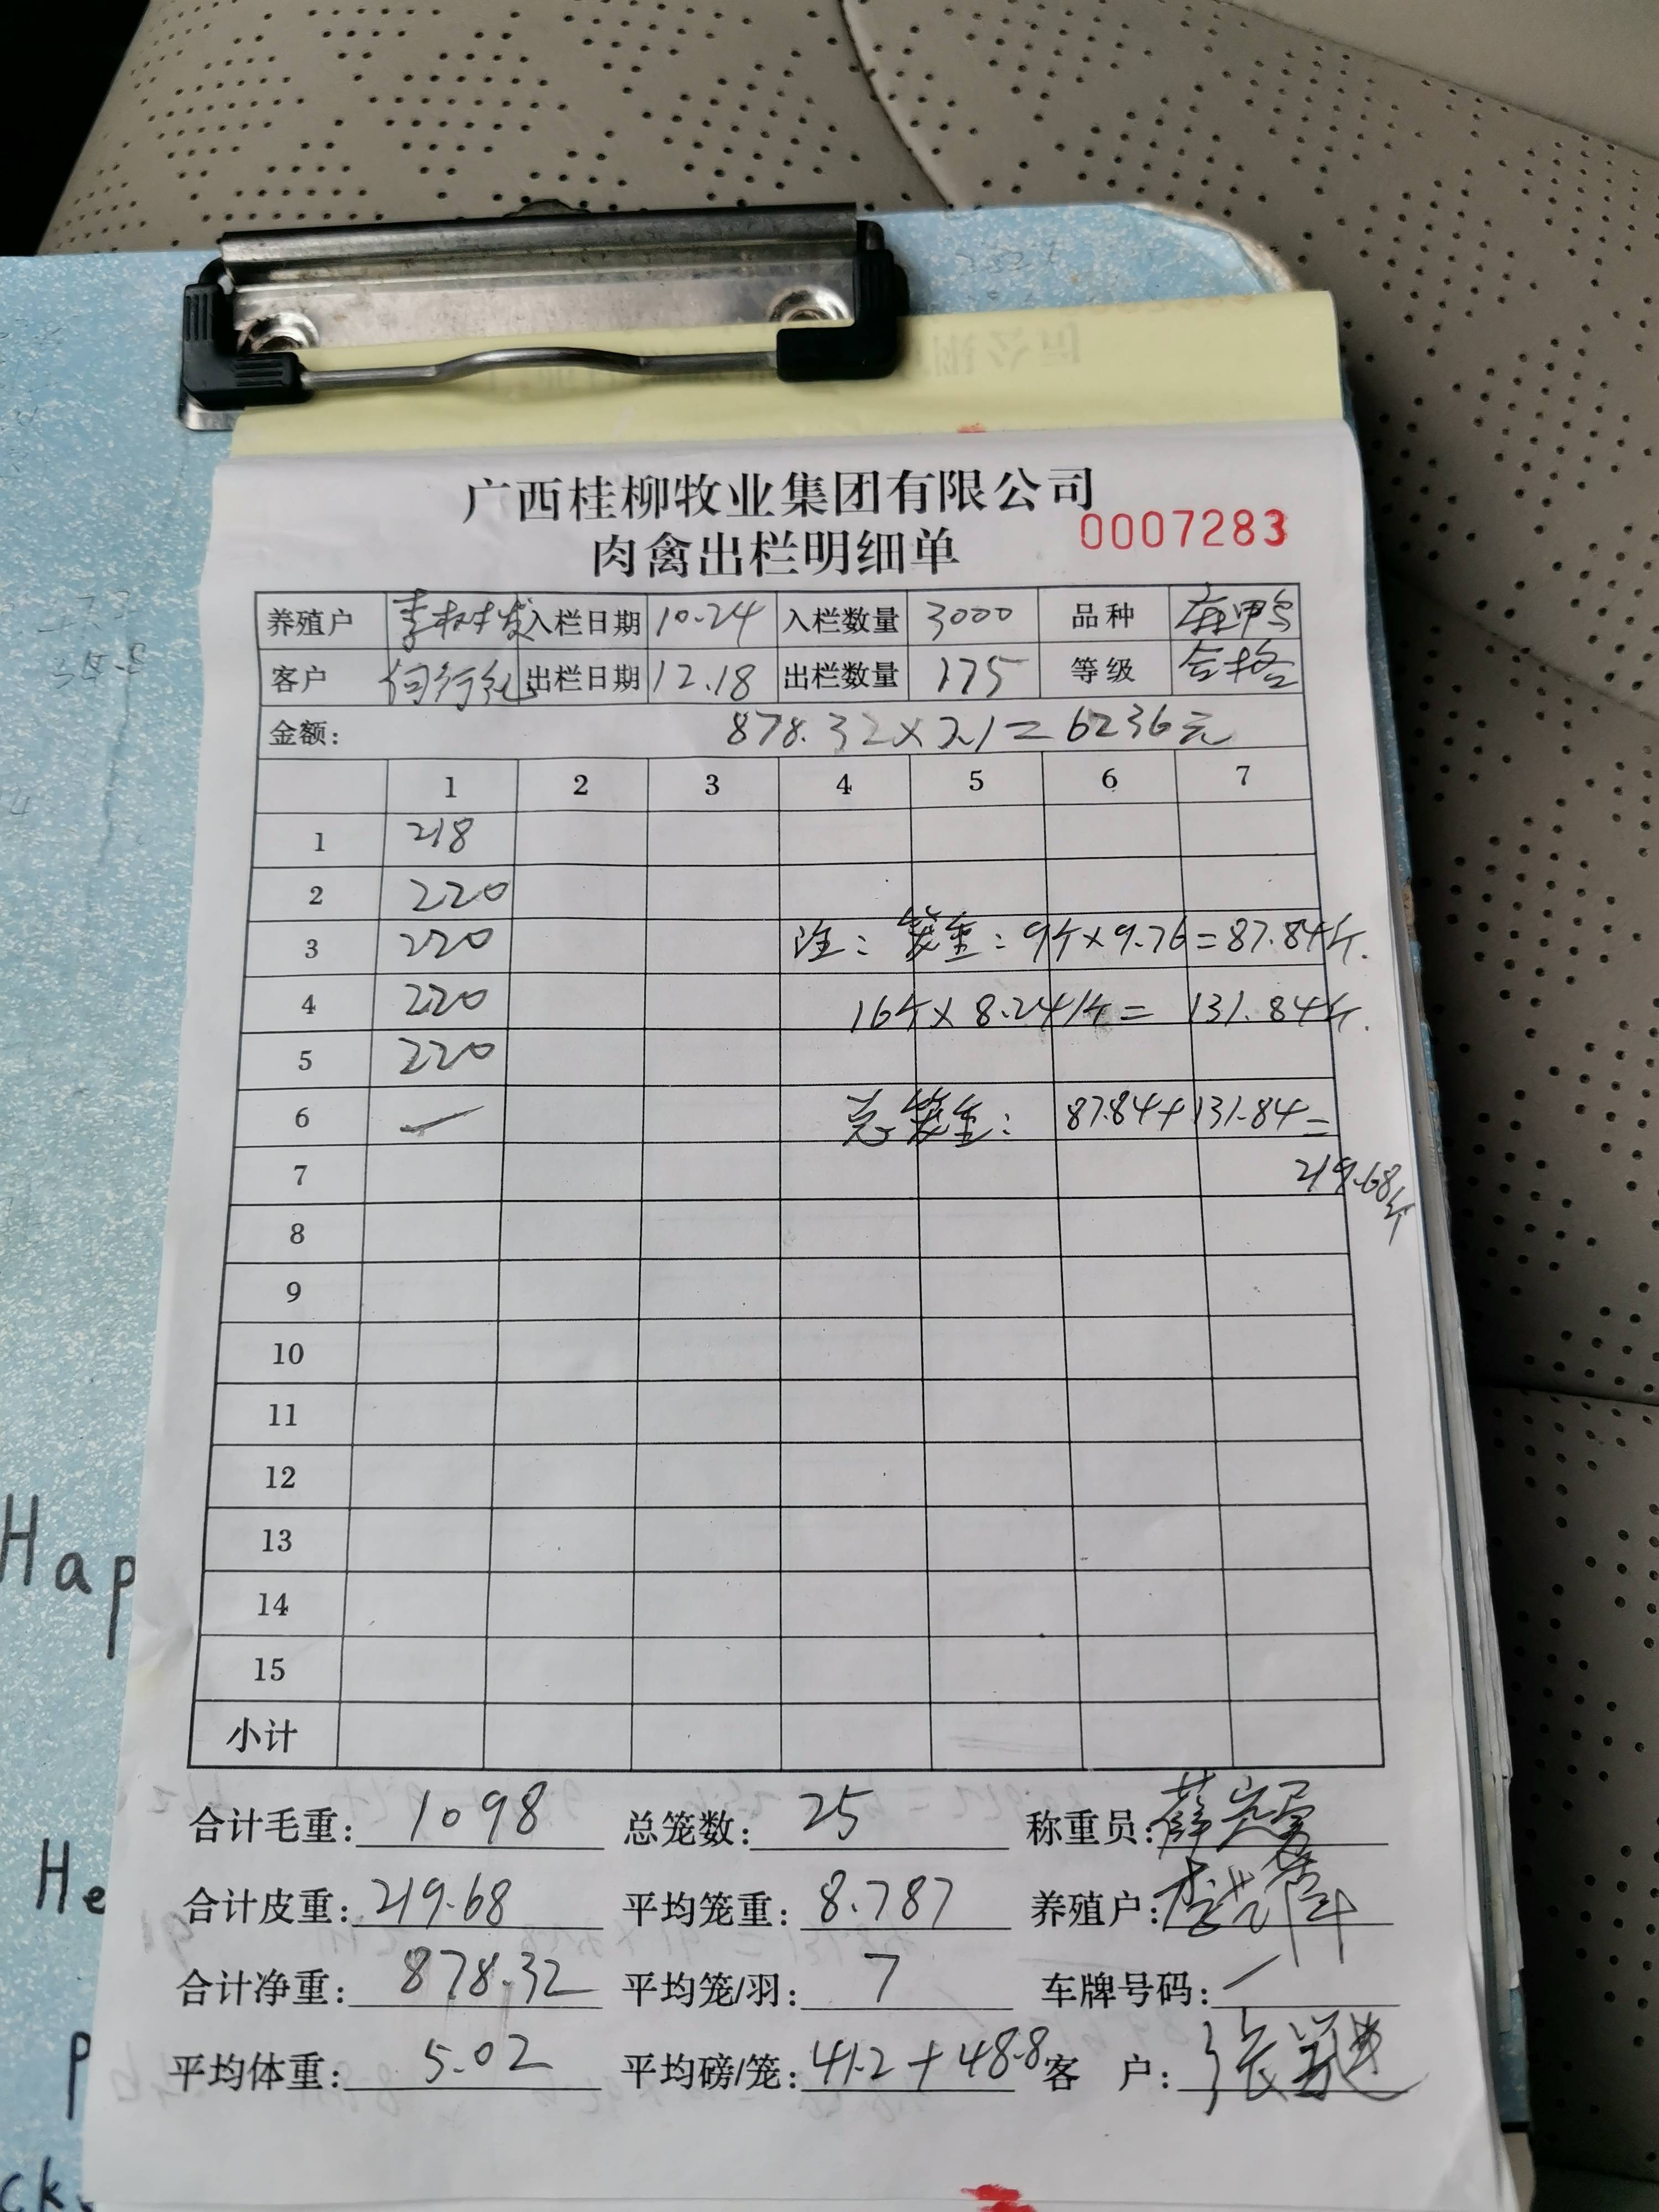 广西桂柳牧业集团有限公司
0007283
肉禽出栏明细单
养殖户 李树发 入栏日期 10.24 入栏数量 3000 品种 麻鸭
客户 何行 出栏日期 12.18 出栏数量 175 等级 合格
金额: 878.32×7.1=6236元
1 2 3 4 5 6 7
1 218
2 220
3 220 注:笼重:9个×9.76=87.84斤.
4 220 16个×8.24斤=131.84斤.
5 220
6 总笼重: 87.84+131.84=
7 219.68斤
8
9
10
11
12
13
14
15
小计
合计毛重: 1098 总笼数: 25 称重员:
合计皮重: 219.68 平均笼重: 8.787 养殖户:
合计净重: 878.32 平均笼/羽: 7 车牌号码: /
平均体重: 5.02 平均磅/笼: 41.2+48.8 客 户: 张
Hap
He
P
ck